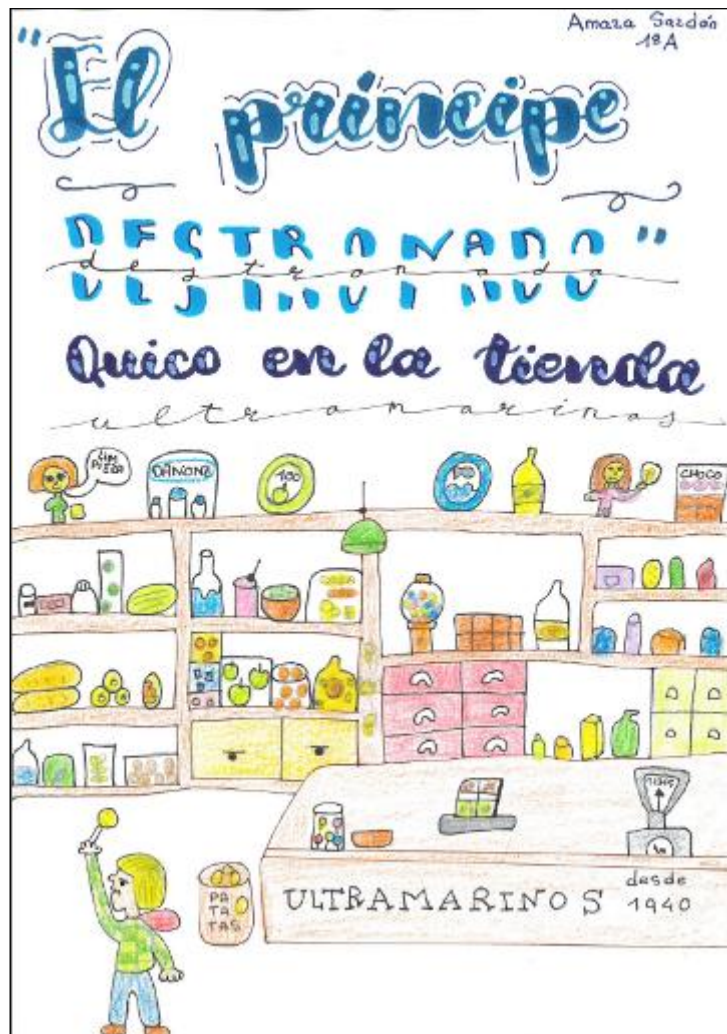 Amaza Sazdón
1ºA
"El príncipe
DESTRONADO"
destronado
Quico en la tienda
ultramarinos
LIMPIEZA
DANONE
100
CHOCO
PA
TA
TAS
ULTRAMARINOS desde
1940